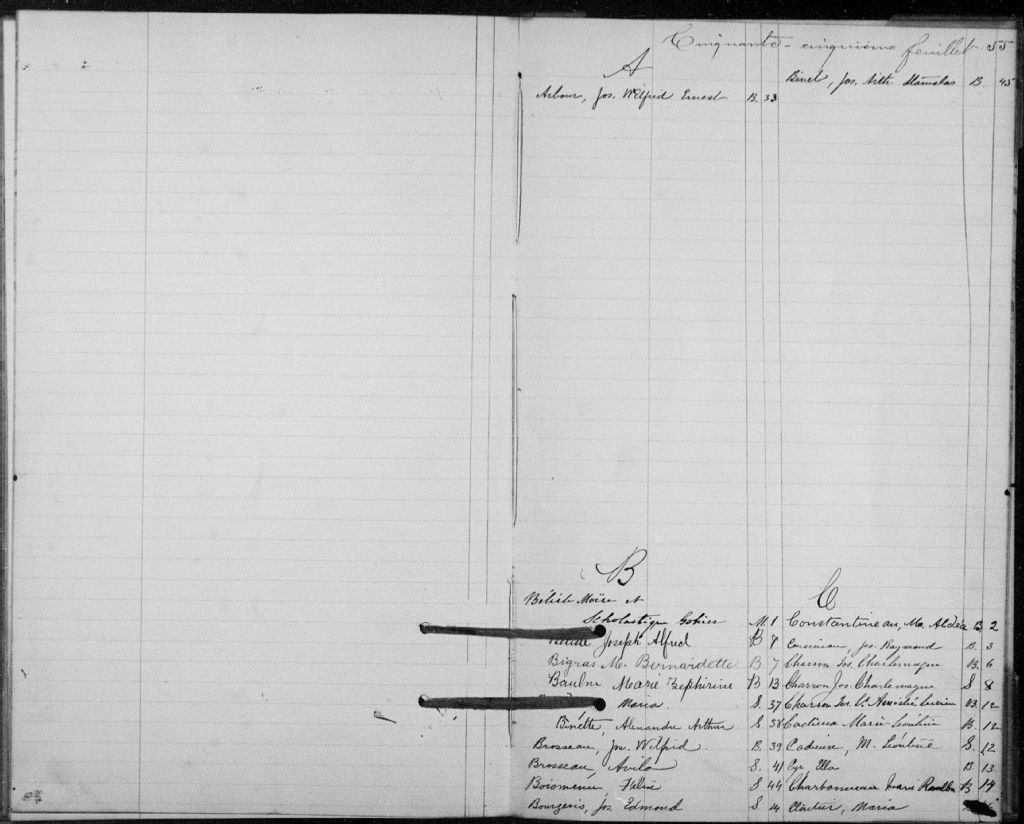 Cinquante-cinquième feuillet 55
A
Arbour, Jos. Wilfrid Ernest B. 33
Binet, Jos. Arth Stanislas B. 45
B
Bélisle Moïse et
Scholastique Gohier M. 1
Joseph Alfred B 8
Bigras M. Bernardette B 7
Baulne Marie Zephirine B 13
Maria S. 37
Binette, Alexandre Arthur S. 38
Brosseau, Jos. Wilfrid B. 39
Brosseau, Avila S. 41
Boismenu, Hélène S 44
Bourgeois, Jos. Edmond S 14
C
Constantineau, M. Aldéa B 2
Jos. Raymond B. 3
Charron Jos. Charlemagne B. 6
Charron Jos. Charlemagne S 8
Charron Jos. Lucien B. 12
Cadieux Marie Léontine B. 12
Cadieux, M. Léontine S. 12
Cyr Ella B. 13
Charbonneau Marie B 14
Cloutier, Maria